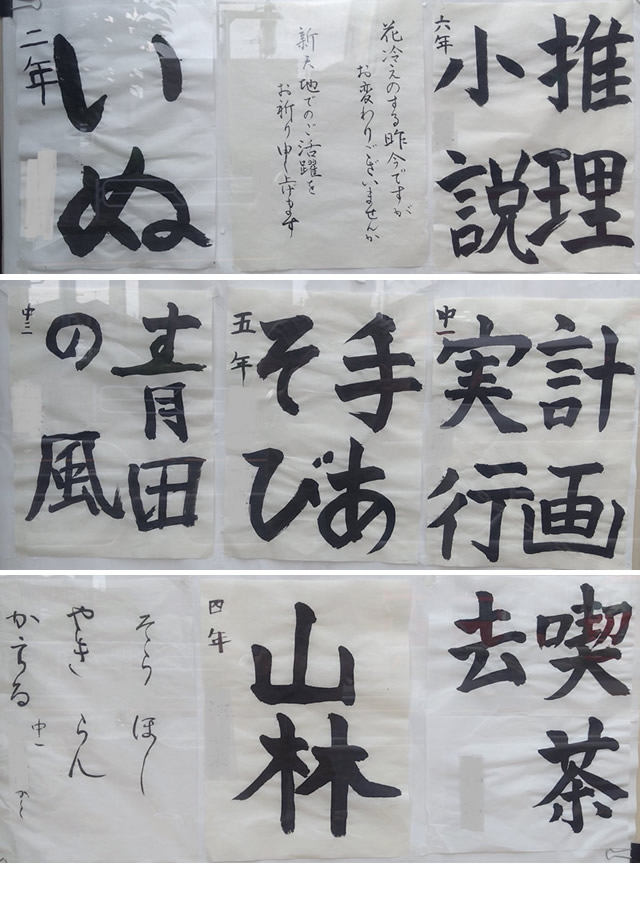 推理
小説
六年
花冷えのする昨今ですが
お変わりございませんか
新天地でのご活躍を
お祈り申し上げます
いぬ
二年
計画
実行
中一
手あ
そび
五年
青田
の風
中三
喫茶
去
山林
四年
そら ほし
やき らん
かえる
中一